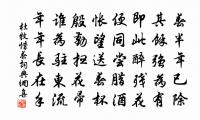 春半年已除
其餘強為有
即此醉殘花
便同嘗臘酒
悵望送春杯
殷勤掃花帚
誰為駐東流
年年長在手
杜牧惜春詞典網集